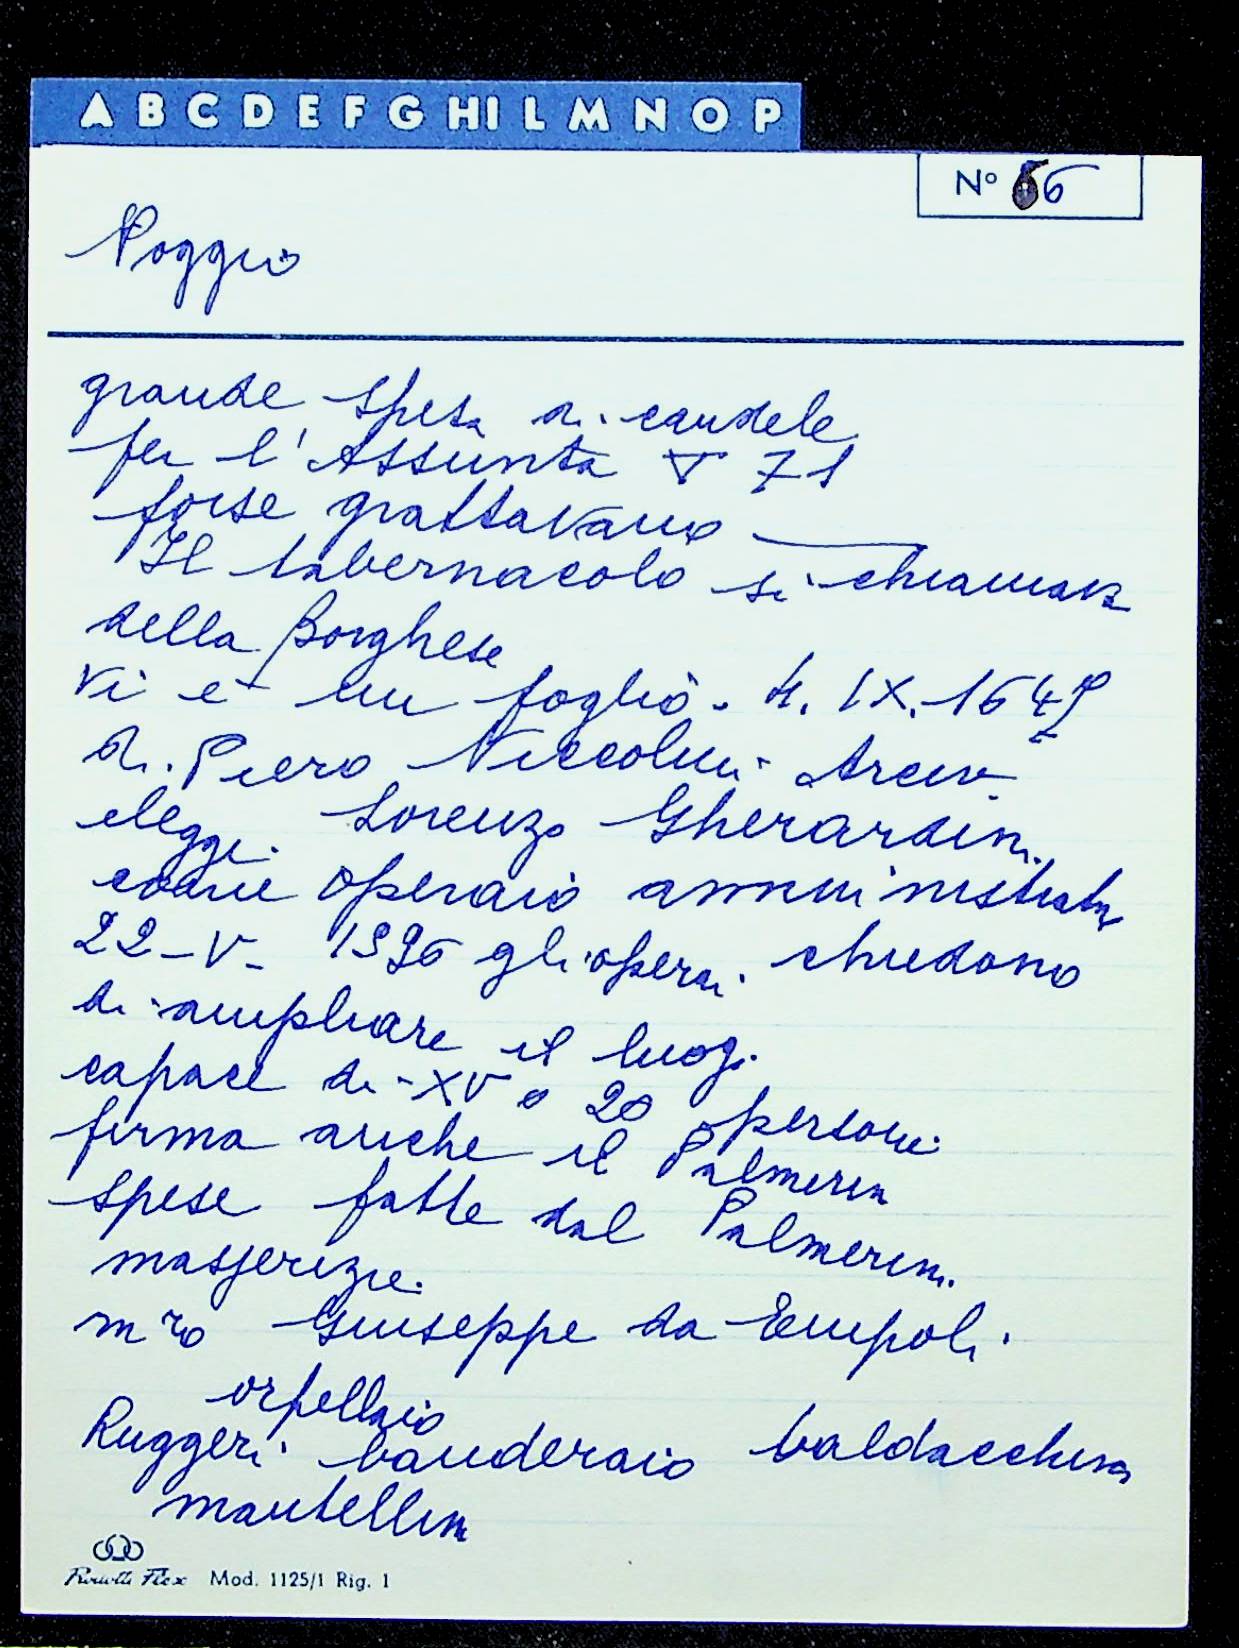 A B C D E F G H I L M N O P
N° 66
Poggio
grande spesa di candele
per l'Assunta V 71
forse grattavano
Il tabernacolo si chiamava
della Borghese
Vi è un foglio. 4. IX. 1649
di Piero Niccolini Arciv.
elegge Lorenzo Gherardini
come operaio amministrat
22-V- 1996 gli operai chiedono
di ampliare il luogo
capace di XV o 20 persone
firma anche il Palmerin
spese fatte dal Palmerini
masserizie.
m ro Giuseppe da Empoli
orpellaio
Ruggeri banderaio baldacchino
mantellin
Mod. 1125/1 Rig. 1